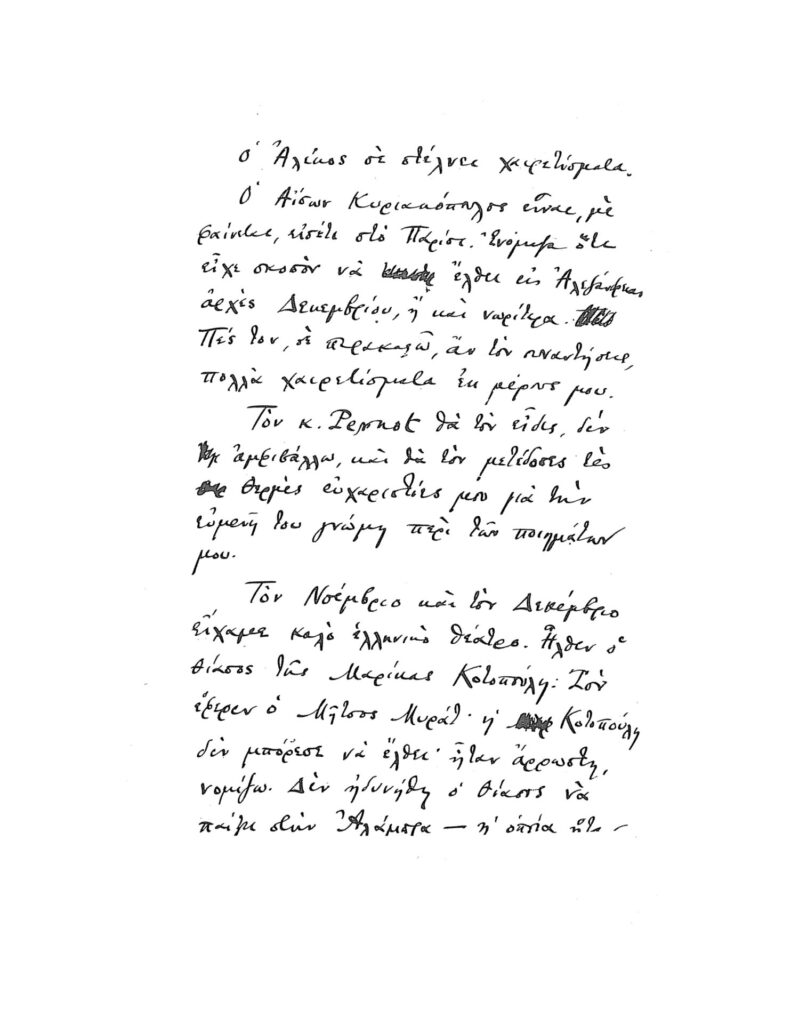 ὁ Ἀλέκος σὲ στέλνει χαιρετίσματα.
Ὁ Αἴσων Κυριακόπουλος εἶναι, μὲ
φαίνεται, εἰσέτι στὸ Παρίσι. Ἐνόμιζα ὅτι
εἶχε σκοπὸν νὰ ἔλθει εἰς Ἀλεξάνδρειαν
ἀρχὲς Δεκεμβρίου, ἢ καὶ νωρίτερα.
Πές του, σὲ παρακαλῶ, ἂν τὸν συναντήσεις,
πολλὰ χαιρετίσματα ἐκ μέρους μου.
Τὸν κ. Pernot θὰ τὸν εἶδες, δὲν
ἀμφιβάλλω, καὶ θὰ τὸν μετέδοσες τὲς
θερμὲς εὐχαριστίες μου γιὰ τὴν
εὐμενῆ του γνώμη περὶ τῶν ποιημάτων
μου.
Τὸν Νοέμβριο καὶ τὸν Δεκέμβριο
εἴχαμε καλὸ ἑλληνικὸ θέατρο. Ἦλθεν ὁ
θίασος τῆς Μαρίκας Κοτοπούλη: Τὸν
ἔφερεν ὁ Μῆτσος Μυράτ· ἡ Κοτοπούλη
δὲν μπόρεσε νὰ ἔλθει· ἦταν ἄρρωστη,
νομίζω. Δὲν ἠδυνήθη ὁ θίασος νὰ
παίξει στὴν Ἀλάμπρα — ἡ ὁποία ἦτο —